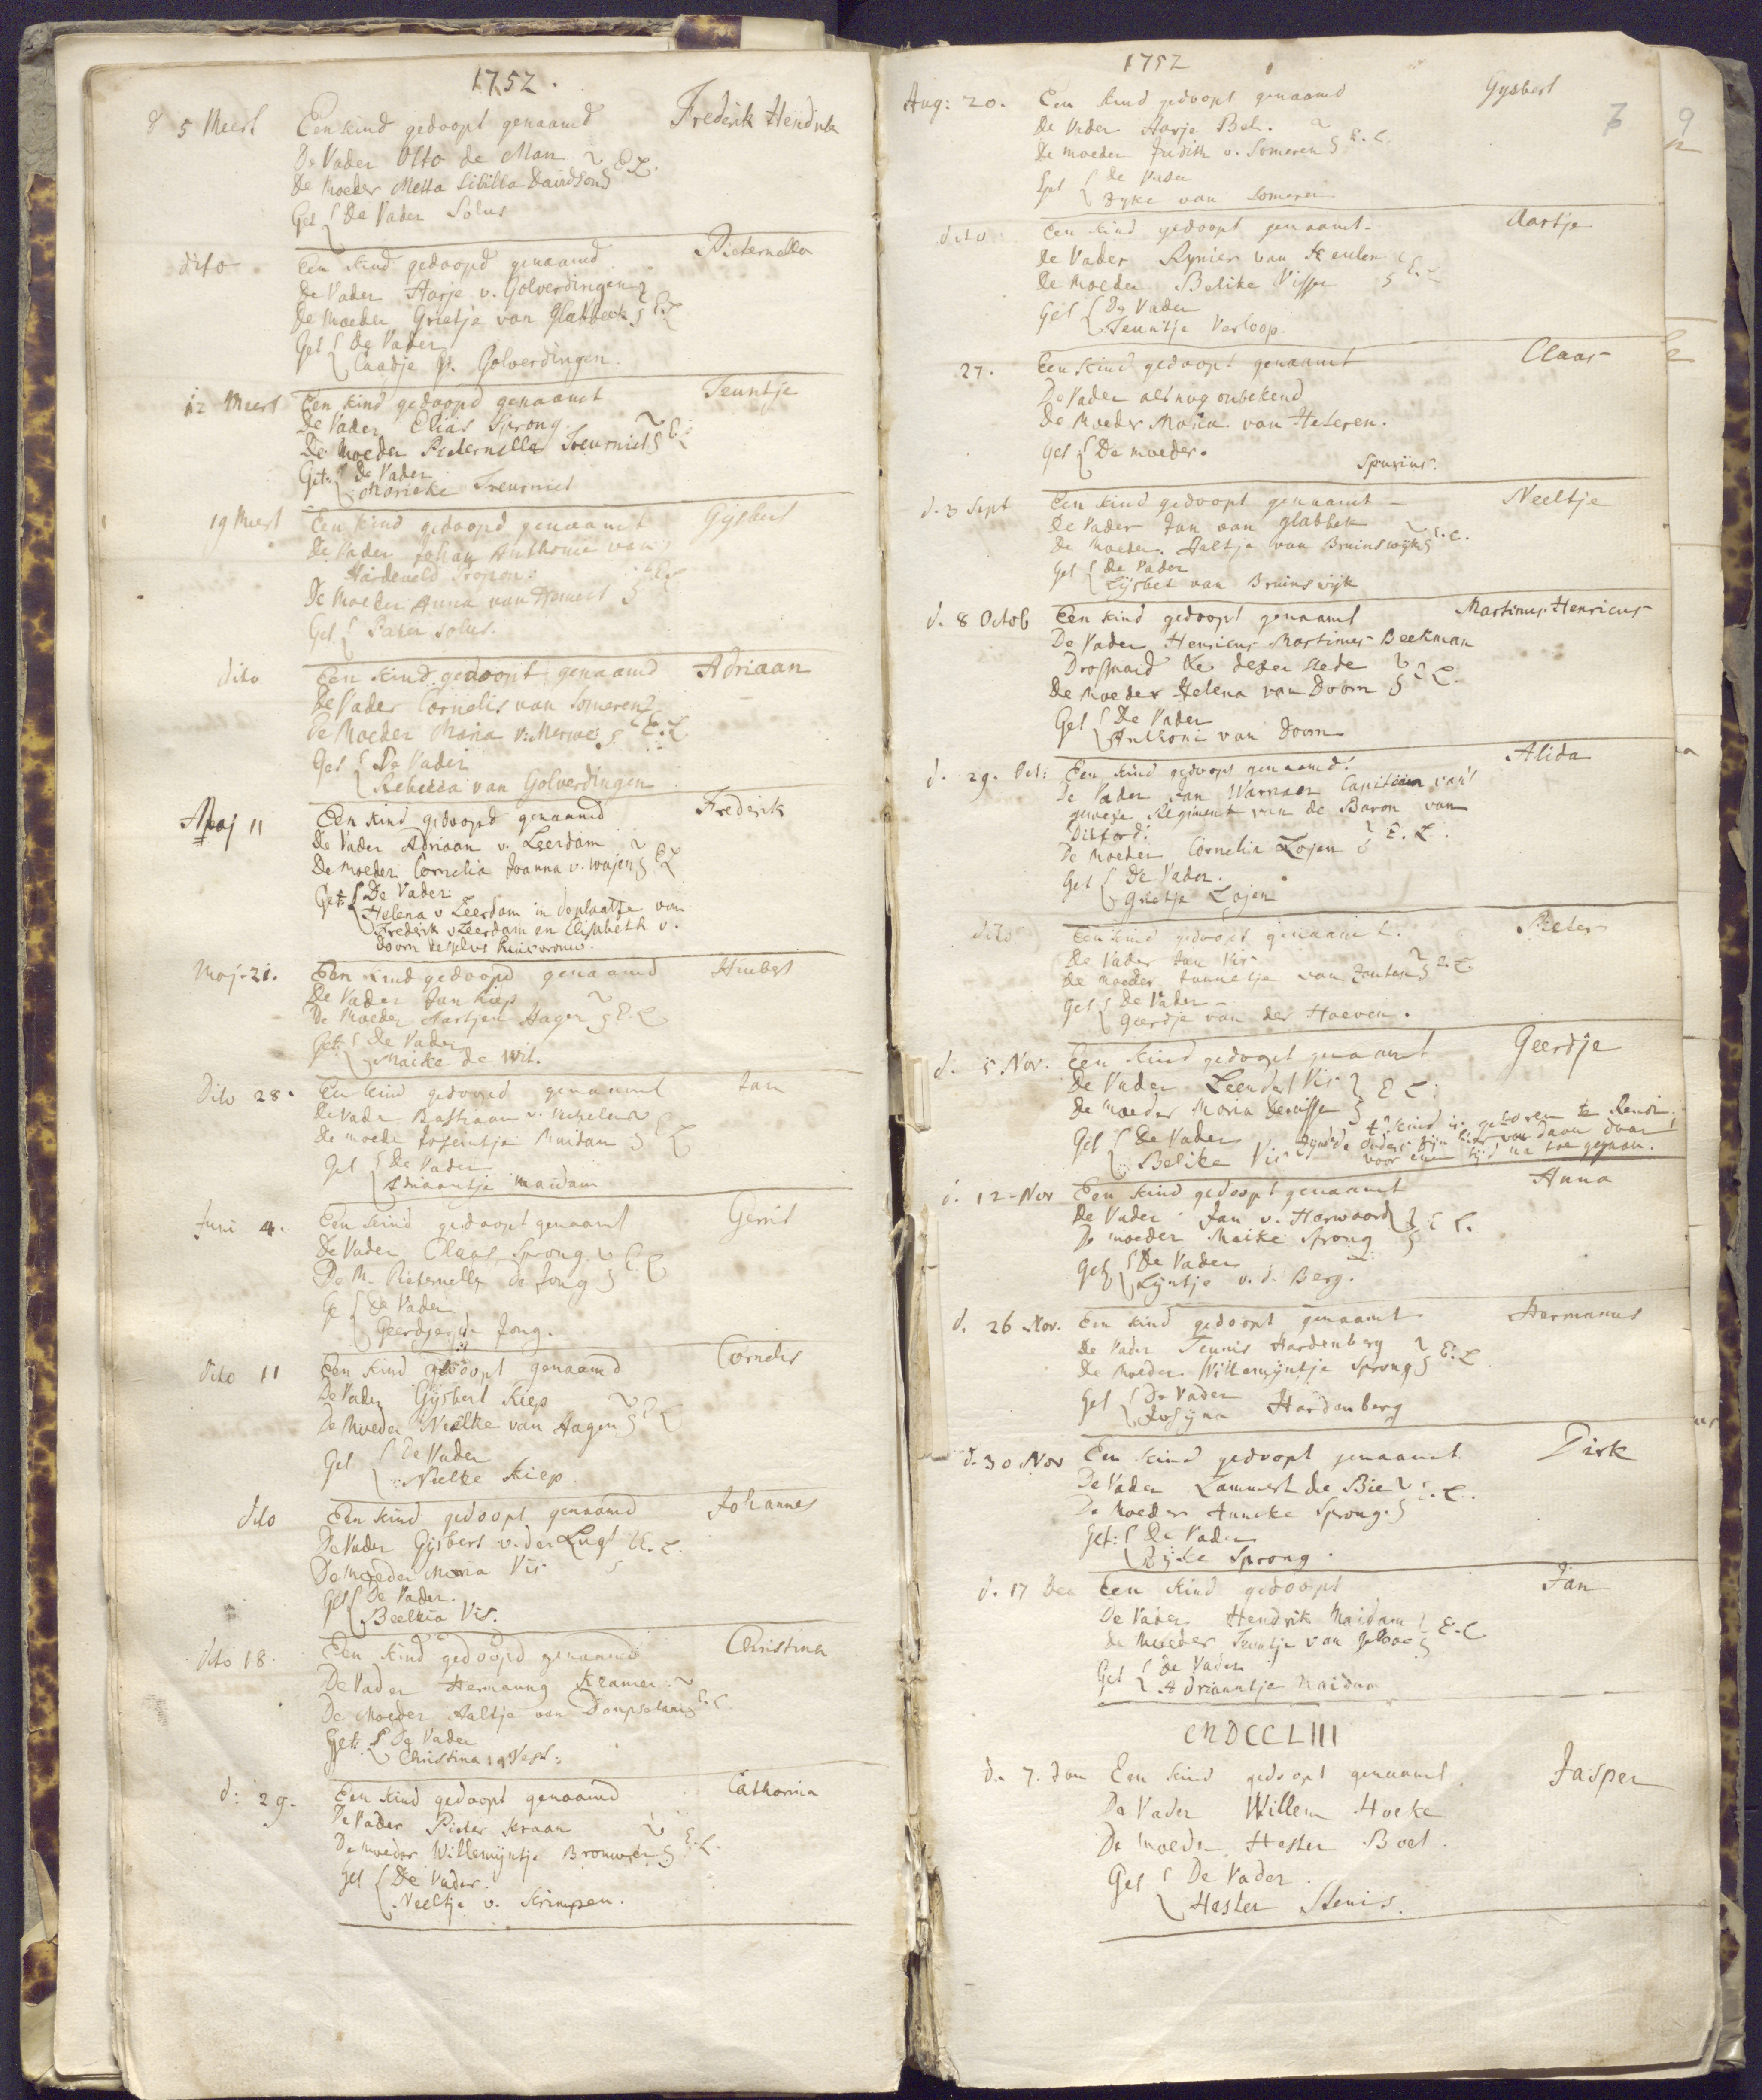 1752.
d 5 Meert Een kind gedoopt genaamd Frederik Hendrik
De Vader Otto de Man
De Moeder Metta Sibilla Davidson E.L.
Get De Vader Solus
dito Een kind gedoopd genaamd Pieternella
De Vader Harje v. Golverdingen
De Moeder Grietje van Glabbeek E.L
Get De Vader
Caatje v. Golverdingen.
12 Meert Een kind gedoopd genaamt Teuntje
De Vader Elias Sprong.
De Moeder Pieternella Treurniet E.L
Get: De Vader
Marieke Treurniet
19 Meert Een kind gedoopd genaamt Gijsbert
De Vader Johan Anthonie van
Hardeveld Propon:
De Moeder Anna van Hemert E.L
Get. Pater solus.
dito Een kind gedoopt genaamd Adriaan
De Vader Cornelis van Someren
De Moeder Maria v: Merwe E.L.
Get De Vader
Rebecca van Golverdingen
Maj 11 Een kind gedoopd genaamd Frederik
De Vader Adriaan v. Leerdam
De Moeder Cornelia Joanna v. Wajen E.L
Get: De Vader
Helena v Leerdam in de plaatse van
Frederik v Leerdam en Elisabeth v.
Doorn deszelvs huisvrouw.
Maj. 21. Een kind gedoopd genaamd Huibert
De Vader Jan Kiep
De Moeder Aartjen Hager E.L
Get: De Vader
Maike de Wit.
Dito 28. Een kind gedoopd genaamt Jan
De Vader Bastiaan v.
De moeder Josijntje Maidam E.L
Get De Vader
Adriaantje Maidam
Juni 4. Een kind gedoopt genaamt Gerrit
De Vader Claas Sprong
De M. Pieternella de Jong E.L
Ge De Vader
Geerdjen de Jong.
Dito 11 Een kind gedoopt genaamd Cornelis
De Vader Gijsbert Kiep
De Moeder Neelke van Hagen E.L
Get De Vader
Neelke Kiep
dito Een kind gedoopt genaamd Johannes
De Vader Gijsbert v. der Lugt E.L.
De Moeder Maria Vis
Get De Vader.
Beelkia Vis.
dito 18. Een kind gedoopd genaamd Christina
De Vader Hermanus Kramer.
De Moeder Aaltje van Dompselaar E.L.
Get: De Vader
Christina
d: 29. Een kind gedoopt genaamd Catharina
De Vader Pieter Kraan
De moeder Willemijntje Brouwer E.L.
Get De Vader.
Neeltje v. Krimpen.
1752
Aug: 20. Een kind gedoopt genaamd Gysbert
De Vader Harje Bel.
De moeder Judith v. Someren E.L.
Get De Vader
Dyke van Someren
dito Een kind gedoopt genaamt Aartje
De Vader Rynier van Keulen
De Moeder Belike Visser E.L
Get De Vader
Teuntje Verloop.
27. Een kind gedoopt genaamt Claas
De Vader als nog onbekend
De Moeder Maria van Heteren.
Get De moeder.
Spurius.
d. 3 Sept Een kind gedoopt genaamt Neeltje
De Vader Jan van Glabbek
De Moeder Aaltje van Bruinswijk E.L.
Get De Vader
Lijsbet van Bruinswijk
d. 8 Octob Een kind gedoopt genaamt Martinus Henricus
De Vader Henricus Martinus Beekman
Drossaard &c dezer stede
De Moeder Helena van Doorn E.L.
Get De Vader
Anthoni van Doorn
d. 29. Oct: Een kind gedoopt genaamd: Alida
De Vader Jan Warnaer Capitein van't
gewese Regiment van de Baron van
Ditford.
De Moeder Cornelia Lojen E.L.
Get De Vader.
Grietje Lojen
dito Een kind gedoopt genaamt. Pieter
De Vader Jan Vis
De Moeder Jannetje van Zanten E.L.
Get De Vader
Geerdje van der Hoeven.
d. 5 Nov. Een kind gedoopt genaamt Geerdje
De Vader Leendert Vis E L:
De Moeder Maria Denisse
Get De Vader t' kind is geboren te
Belike Vis zynde d'ouders zijn hier van daan daar
voor een tijd na toe gegaan.
d. 12 Nov Een kind gedoopt genaamt Anna
De Vader Jan v. Harwaard E L.
De moeder Maike Sprong
Get De Vader
Lijntje v. d. Berg.
d. 26 Nov. Een kind gedoopt genaamt Hermanus
De Vader Teunis Hardenberg
De Moeder Willemijntje Sprong E.L
Get De Vader
Josijna Hardenberg
d. 30 Nov Een kind gedoopt genaamt Dirk
De Vader Lammert de Bie
De Moeder Anneke Sprong. E.L.
Get: De Vader
Rijke Sprong.
d. 17 Dec Een kind gedoopt Jan
De Vader Hendrik Maidam E.L
De Moeder Teuntje van
Get De Vader
Adriaantje Maidam
MDCCLIII
d. 7. Jan Een kind gedoopt genaamt Jasper
De Vader Willem Hoeke
De Moeder Hester Boet.
Get De Vader.
Hester Stenis.